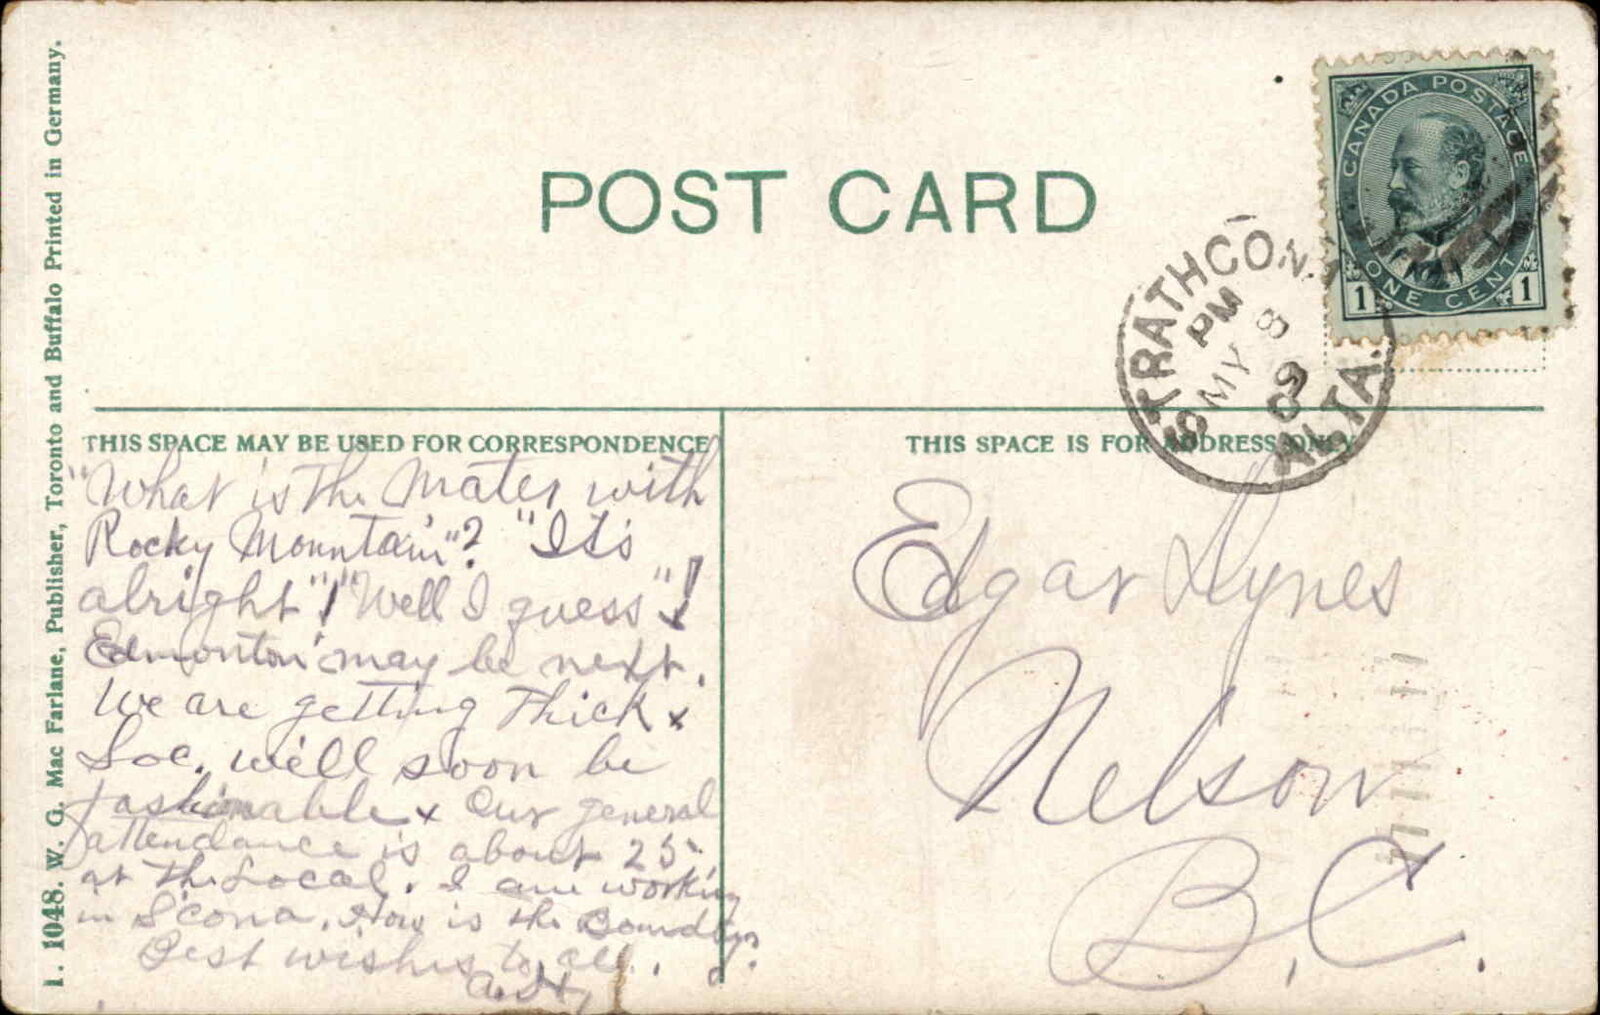 POST CARD
CANADA POSTAGE
ONE CENT
1 1
STRATHCONA
PM
MY 8
09
ALTA.
THIS SPACE MAY BE USED FOR CORRESPONDENCE
"What is the Mater with
Rocky Mountain"? "It's
alright"! "Well I guess"!
Edmonton may be next.
We are getting thick &
Soc. will soon be
fashionable & Our general
attendance is about 25
at the Local. I am working
in S'cona. How is the Boundary?
Best wishes to all.
THIS SPACE IS FOR ADDRESS ONLY
Edgar Dynes
Nelson
B.C.
I. 1048. W. G. Mac Farlane, Publisher, Toronto and Buffalo Printed in Germany.